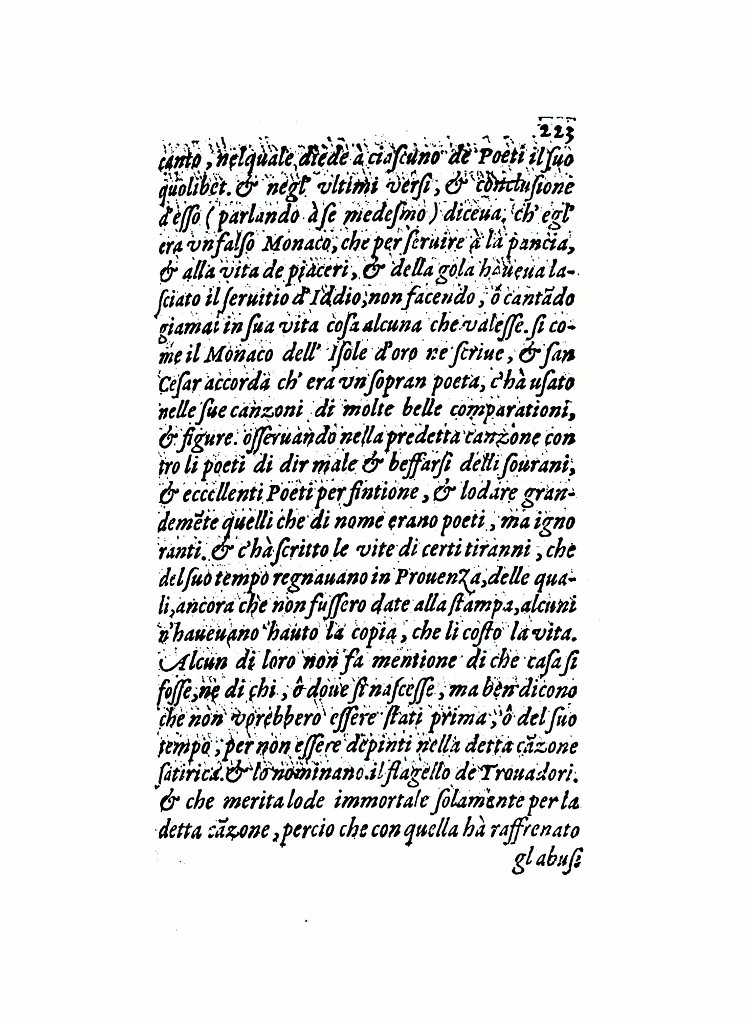 223
canto, nelquale diede à ciaſcuno de Poeti il ſuo
quolibet. & negl' vltimi verſi, & concluſione
d'eſſo (parlando à ſe medeſmo) diceua, ch' egl'
era vn falſo Monaco, che per ſeruire à la pancia,
& alla vita de piaceri, & della gola haueua la-
ſciato il ſeruitio d'Iddio, non facendo, ò cantãdo
giamai in ſua vita coſa alcuna che valeſſe. ſi co-
me il Monaco dell' Iſole d'oro ne ſcriue, & ſan
Ceſar accorda ch' era vn ſopran poeta, c'hà uſato
nelle ſue canzoni di molte belle comparationi,
& figure. oſſeruando nella predetta canzone con
tro li poeti di dir male & beffarſi delli ſourani,
& eccellenti Poeti per fintione, & lodare gran-
demẽte quelli che di nome erano poeti, ma igno
ranti. & c'hà ſcritto le vite di certi tiranni, che
del ſuo tempo regnauano in Prouenza, delle qua-
li, ancora che non fuſſero date alla ſtampa, alcuni
n'haueuano hauto la copia, che li coſto la vita.
Alcun di loro non fa mentione di che caſa ſi
foſſe, ne di chi, ò doue ſi naſceſſe, ma ben dicono
che non vorebbero eſſere ſtati prima, ò del ſuo
tempo, per non eſſere depinti nella detta cãzone
ſatirica. & lo nominano il flagello de Trouadori.
& che merita lode immortale ſolamente per la
detta cãzone, percio che con quella hà raffrenato
gl abuſi